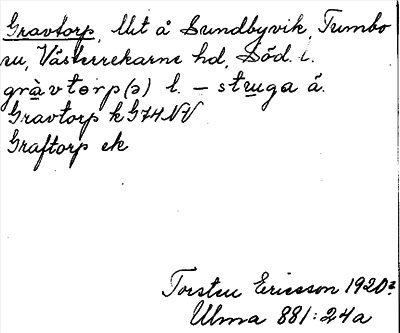 Gravtorp, Utt å Sundbyvik, Tumbo
su, Västerrekarne hd, Söd. l.
gràvtɵrp(ə) l. – stuga å.
Gravtorp kG74NV
Graftorp ek
Torsten Ericsson 1920?
Ulma 881:24a